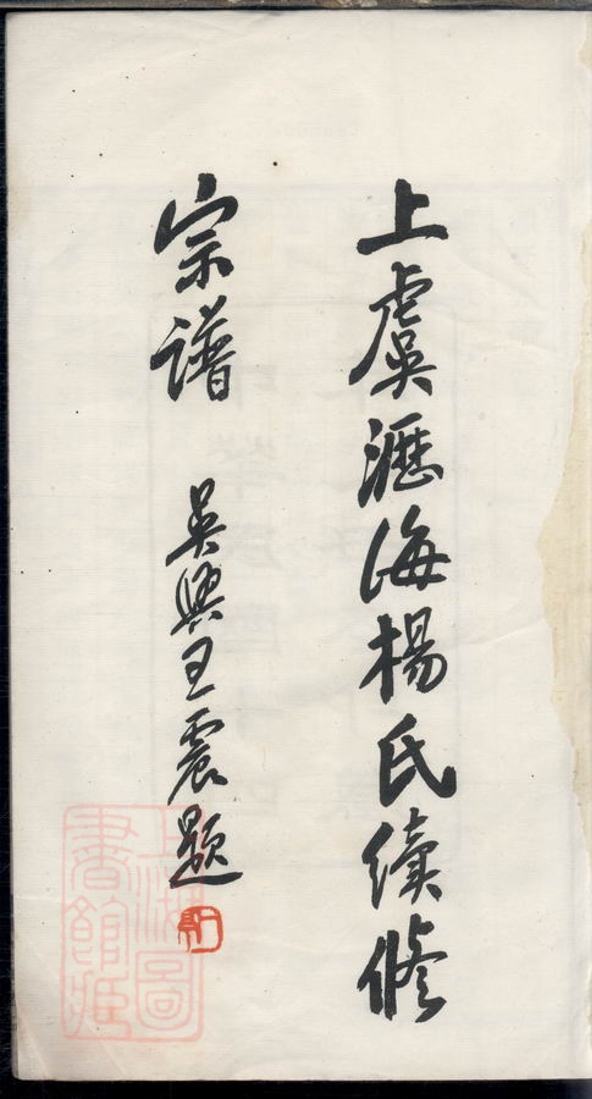 上虞瀝海楊氏續修
宗譜
吳興王震題
上海圖
書館藏